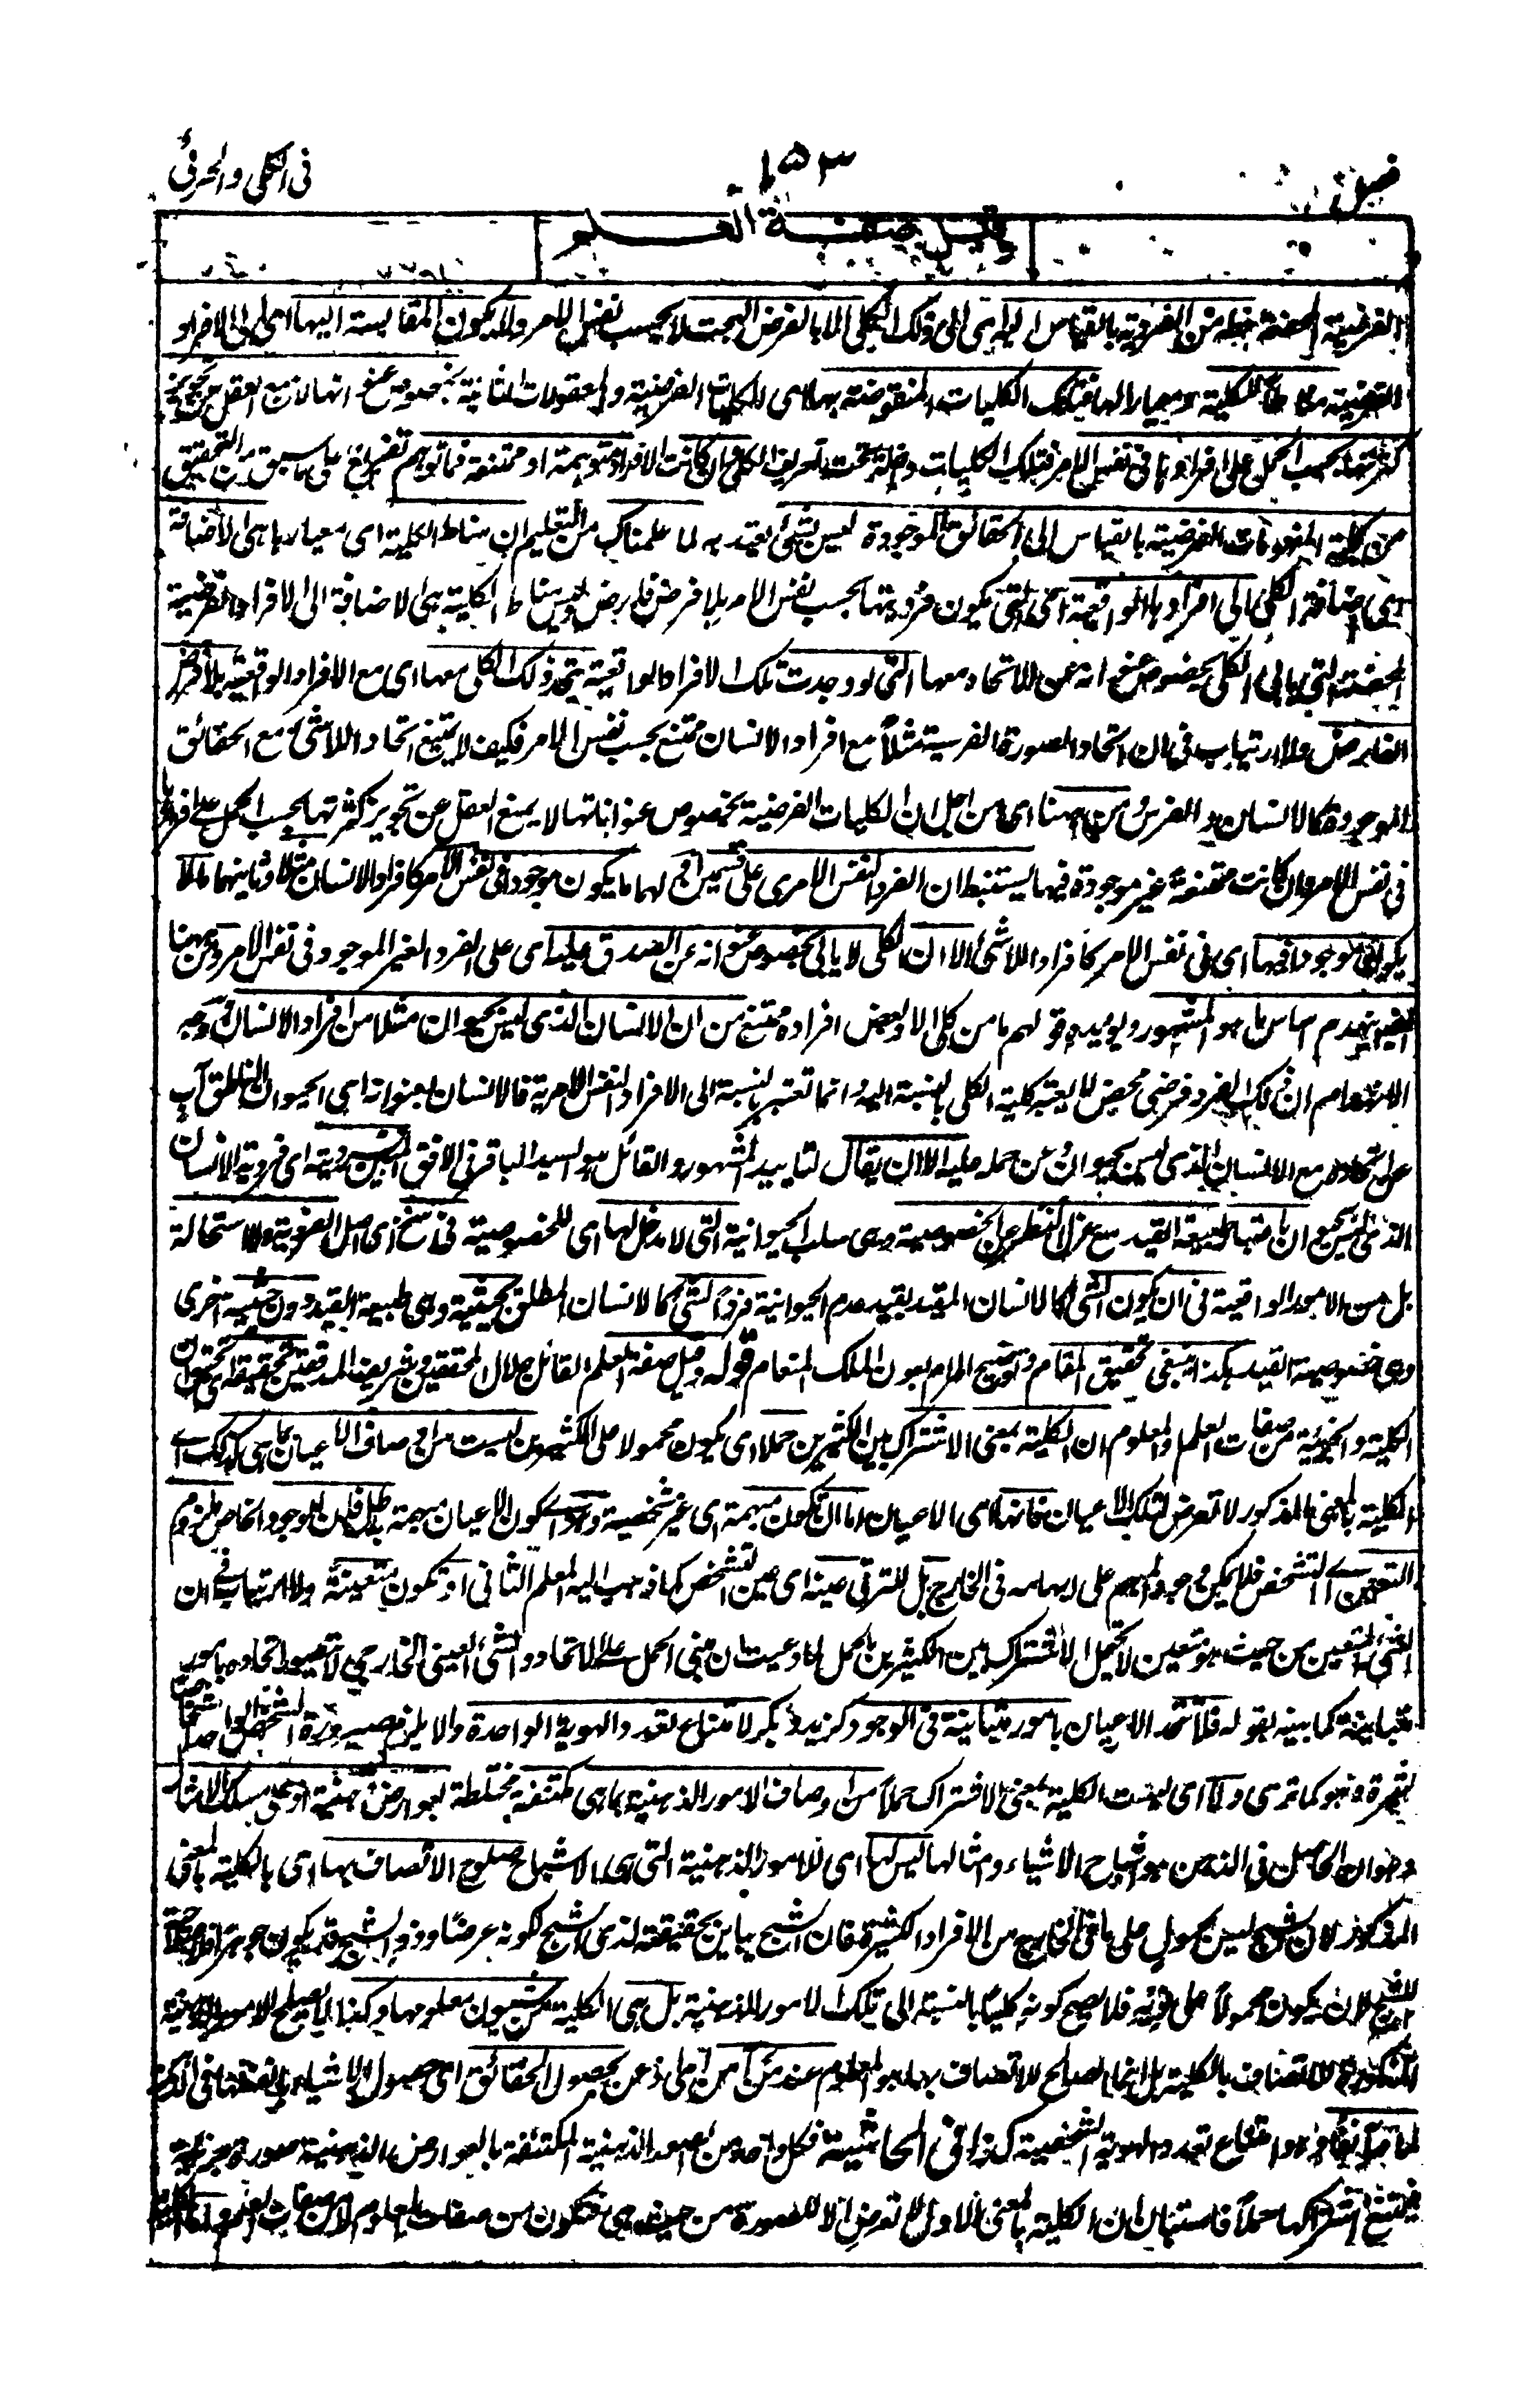 فى الكلى والجزئى
١٥٣
فصل
وقيل صفة العلم
الفرضية المحضة خطه من الفردية بالقياس اليه اى الى ذلك الكلى الا بالفرض البحت لا بحسب نفس الامر ولا يكون المقايسة اليها اى الى الافراد
الفرضية مناطا للكلية ومعيارا لها فتلك الكليات المنقوضة بها اى الكليات الفرضية والمعقولات الثانية بخصوص عنوانها لا تمنع العقل عن تجويز
كثرتها بحسب الحمل على افرادها فى نفس الامر فتلك الكليات داخلة تحت تعريف الكلى وان كانت الافراد متوهمة او ممتنعة فما توهم تفريع على ما سبق من التحقيق
من كلية المفهومات الفرضية بالقياس الى الحقائق الموجودة ليس بشئ يعتد به لما علمناك من التعليم ان مناط الكلية اى معيارها هى الاضافة
اى اضافة الكلى الى افرادها الواقعية اعنى التى يكون فرديتها بحسب نفس الامر بلا فرض فارض وليس مناط الكلية هى الاضافة الى الافراد الفرضية
المحضة التى يابى الكلى بخصوص عنوانه عن الاتحاد معها التى لو وجدت تلك الافراد الواقعية يتحد ذلك الكلى معها اى مع الافراد الواقعية بلا فرض
الفارض ولا ارتياب فى ان اتحاد الصورة الفرسية مثلاً مع افراد الانسان ممتنع بحسب نفس الامر فكيف لا يمتنع اتحاد اللاشئ مع الحقائق
الموجودة كالانسان والفرس ومن ههنا اى من اجل ان الكليات الفرضية بخصوص عنواناتها لا يمنع العقل عن تجويز كثرتها بحسب الحمل على افرادها
فى نفس الامر وان كانت ممتنعة غير موجودة فيها يستنبط ان الفرد النفس الامرى على قسمين اولهما ما يكون موجودا فى نفس الامر كافراد الانسان مثلا وثانيهما ما لا
يكون موجودا فيها اى فى نفس الامر كافراد اللاشئ الا ان الكلى لا يابى بخصوص عنوانه عن الصدق عليه اى على الفرد الغير الموجود فى نفس الامر ومن ههنا
ايضا ينهدم اساس ما هو المشهور ويؤيده قولهم ما من كلى الا وبعض افراده ممتنع من ان الانسان الذى ليس بحيوان مثلا من افراد الانسان وجه
الانهدام ان ذلك الفرد فرضى محض لا يعتبر كلية الكلى بالنسبة اليه وانما تعتبر بالنسبة الى الافراد النفس الامرية فالانسان بعنوانه اى الحيوان الناطق آب
عن اتحاده مع الانسان الذى ليس بحيوان وعن حمله عليه الا ان يقال لتاييد المشهور والقائل هو السيد الباقر فى الافق المبين فرديته اى فردية الانسان
الذى ليس بحيوان باعتبار طبيعة القيد مع عزل النظر عن الخصوصية وهى سلب الحيوانية التى لا مدخل لها اى للخصوصية فى سنخ اى اصل الفردية ولا استحالة
بل من الامور الواقعية فى ان يكون الشئ كالانسان المقيد بقيد عدم الحيوانية فردا لشئ كالانسان المطلق بحيثية وهى طبيعة القيد دون حيثية اخرى
وهى خصوصية القيد هكذا ينبغى تحقيق المقام وتوضيح المرام بعون الملك المنعام قوله وقيل صفة العلم القائل جلال المحققين وشريف المدققين
الكلية والجزئية من صفات العلم والمعلوم ان الكلية بمعنى الاشتراك بين الكثيرين حملا اى يكون محمولا على الكثيرين ليست من اوصاف الاعيان بما هى كذلك اے
الكلية بالمعنى المذكور لا تعرض لتلك الاعيان فانها اى الاعيان اما ان تكون مبهمة اى غير شخصية وهو اے كون الاعيان مبهمة باطل فان الوجود الخاص ملزوم
التعين اے التشخص فلا يكون وجود المبهم على ابهامه فى الخارج بل للترقى عينه اى عين التشخص كما ذهب اليه المعلم الثانى او تكون متعينة ولا ارتياب فى ان
الشئ المتعين من حيث هو متعين لا يحتمل الاشتراك بين الكثيرين بالحمل لما دعيت ان مبنى الحمل على الاتحاد والشئ العينى الخارجى لا يتصور اتحاده بامور
متباينة كما بينه بقوله فلا تتحد الاعيان بامور متباينة فى الوجود كزيد وبكر لامتناع تعدد الهوية الواحدة والا يلزم صيرورة الشخص الواحد اشخاصا
كثيرة وهو كما ترى ولا اى ليست الكلية بمعنى الاشتراك حملا من اوصاف الامور الذهنية بما هى مكتنفة مختلطة بعوارض ذهنية او على مسلك الامثال
وهو ان الحاصل فى الذهن هو اشباح الاشياء ومثالها ليس لها اى للامور الذهنية التى هى الاشباح صلوح الاتصاف بها اى بالكلية بالمعنى
المذكور لان الشبح ليس بمحمول على ما فى الخارج من الافراد الكثيرة فان الشبح يباين بحقيقته لذى الشبح لكونه عرضا وذو الشبح قد يكون جوهرا فلا يصلح
الشبح لان يكون محمولا على ذويه فلا يصح كونه كليا بالنسبة الى تلك الامور الذهنية بل هى الكلية من شيون معلومها وكذا لا يصلح الامور الذهنية
المذكورة للاتصاف بالكلية بل انما الصالح للاتصاف بها هو المعلوم عند من آمن اى ذعن بحصول الحقائق اى حصول الاشياء بانفسها فى الذهن
لما مر آنفا وهو امتناع تعدد الهوية الشخصية كذا فى الحاشية فكل واحد من الصور الذهنية المكتنفة بالعوارض الذهنية صورة جزئية
فيمتنع اشتراكها حملا فاستبان ان الكلية بالمعنى الاول لا تعرض الا للصورة من حيث هى فتكون من صفات المعلوم لا من صفات العلم